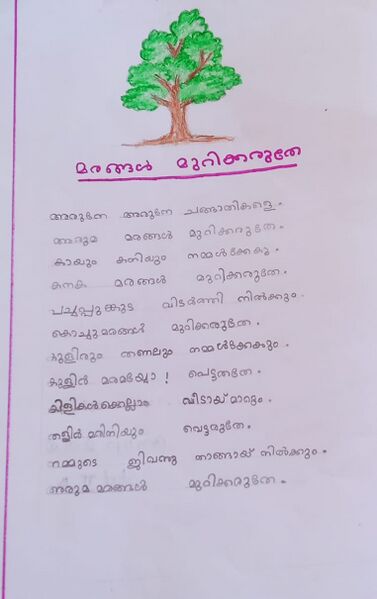 മരങ്ങൾ മുറിക്കരുതേ
അരുതേ അരുതേ ചങ്ങാതികളെ.
അരുമ മരങ്ങൾ മുറിക്കരുതേ.
കായും കനിയും നമ്മൾക്കേകു.
കനക മരങ്ങൾ മുറിക്കരുതേ.
പച്ചപ്പുക്കുട വിടർത്തി നിൽക്കും.
കൊച്ചുമരങ്ങൾ മുറിക്കരുതേ.
കുളിരും തണലും നമ്മൾക്കേകും.
കുളിൻ
കിളികൾക്കെല്ലാം വീടായ് മാറും.
തളിർ വെട്ടരുതേ.
നമ്മുടെ ജിവന്നു താങ്ങായ് നിൽക്കും.
അരുമ മരങ്ങൾ മുറിക്കരുതേ.